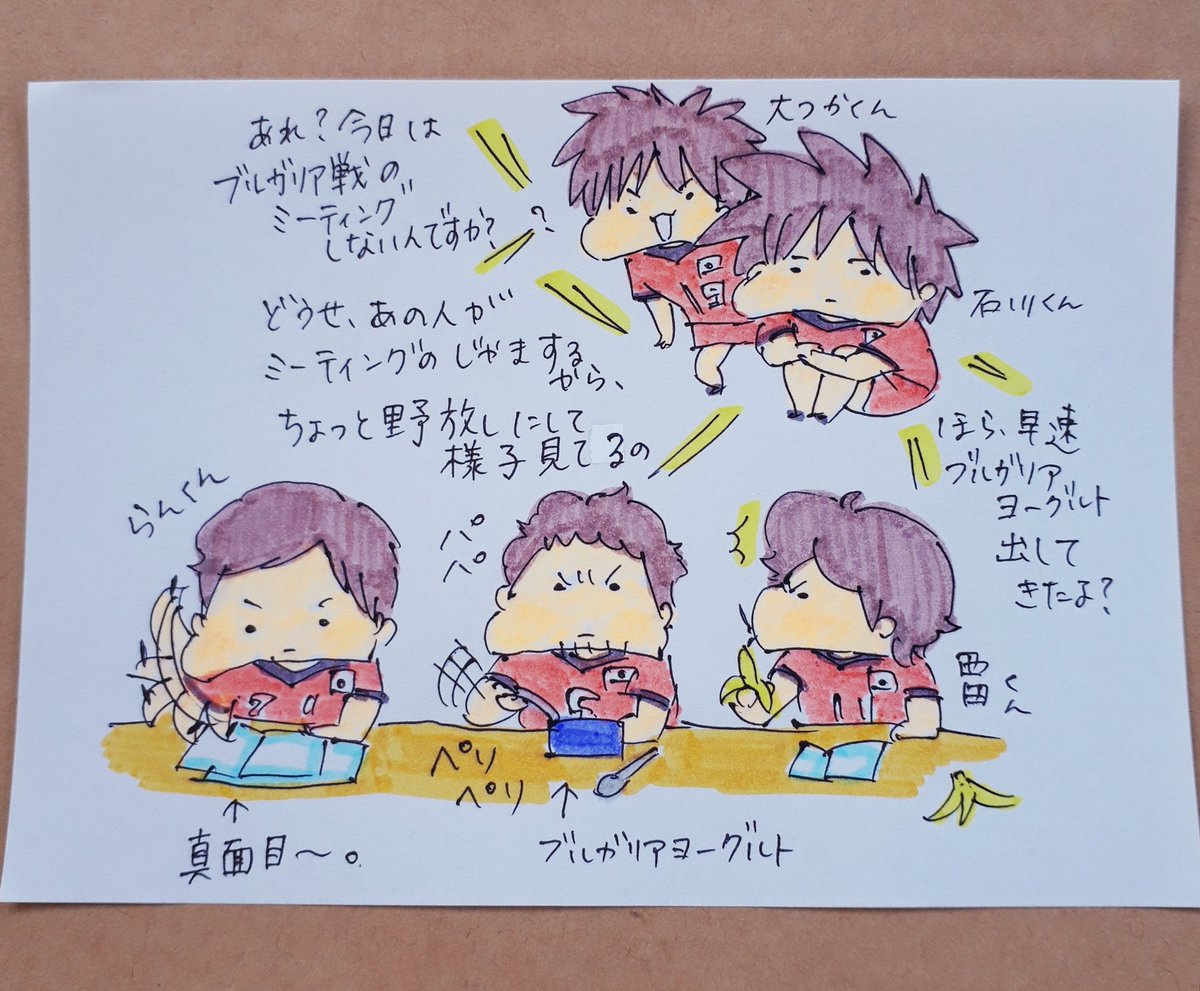 あれ？今日は
ブルガリア戦の
ミーティング
しないんですか？
?
大つかくん
石川くん
どうせ、あの人が
ミーティングのじゃまする
から、
ちょっと野放しにして
様子見てるの
ほら、早速
ブルガリア
ヨーグルト
出して
きたよ？
らんくん
パ
ペ
西田くん
11
ペリ
ペリ
↑
真面目〜。
↑
ブルガリアヨーグルト